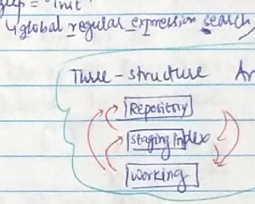 = "init"
global regular expression search
Three-structure Ar
Repository
Staging Index
Working